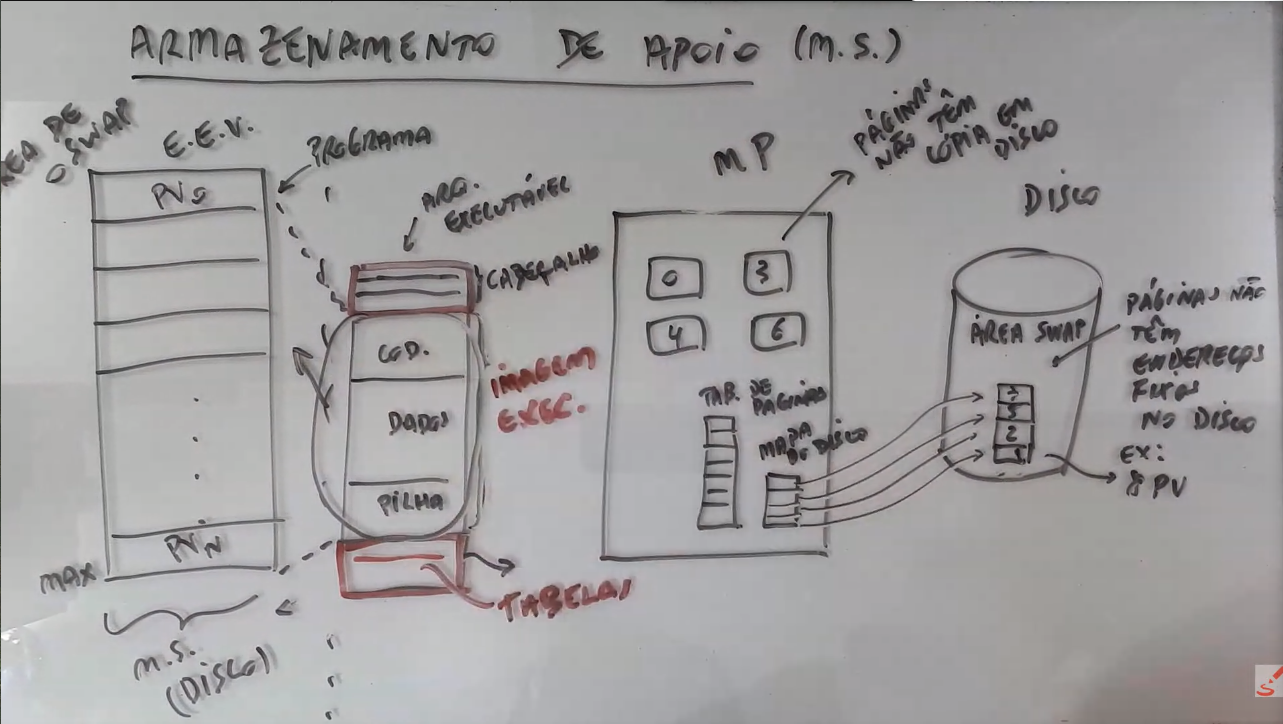 ARMAZENAMENTO DE APOIO (M.S.)
ÁREA DE
SWAP
0
E.E.V.
PV0
PVN
MAX
M.S.
(DISCO)
PROGRAMA
ARQ.
EXECUTÁVEL
CABEÇALHO
COD.
DADOS
PILHA
IMAGEM
EXEC.
TABELAS
MP
PÁGINAS
NÃO TÊM
CÓPIA EM
DISCO
0
3
4
6
TAB. DE
PÁGINAS
MAPA
DE DISCO
DISCO
ÁREA SWAP
7
5
2
1
PÁGINAS NÃO
TÊM
ENDEREÇOS
FIXOS
NO DISCO
EX:
8 PV